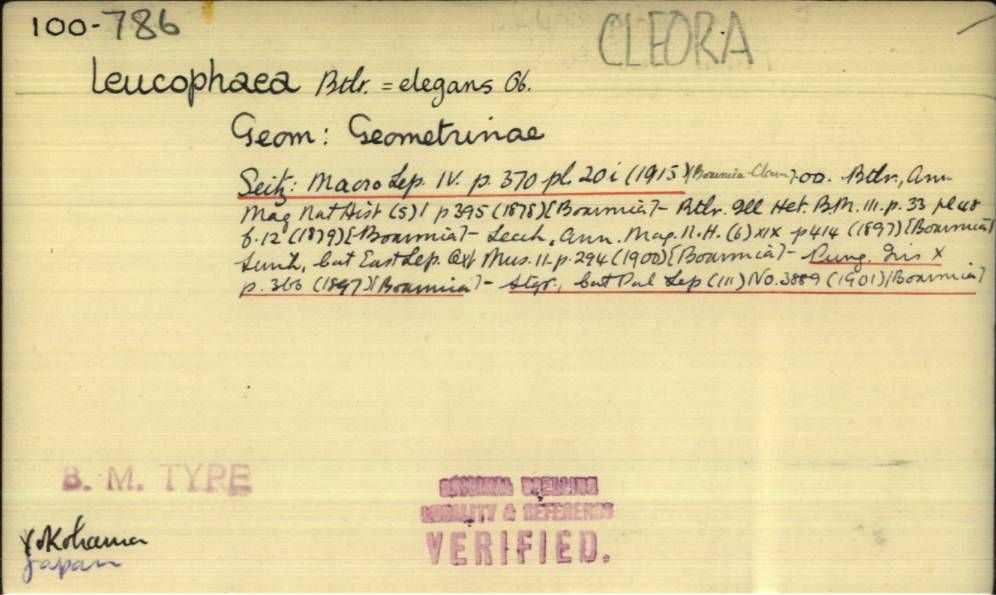 100-786
CLEORA
leucophaea Btlr. = elegans Ob.
Geom: Geometrinae
Seitz: Macro Lep. IV. p. 370 pl. 20 i (1915) [Boarmia-Cleora] 00. - Btlr, Ann
Mag Nat Hist (5) 1 p 395 (1878) [Boarmia] - Btlr. Ill Het. B.M. III. p. 33 pl 48
f. 12 (1879) [Boarmia] - Leech, Ann. Mag. N. H. (6) XIX p 414 (1897) [Boarmia]
Swinh, Cat East Lep. Oxf Mus. II. p. 294 (1900) [Boarmia] - Pung. Iris X
p. (1897) [Boarmia] - Stgr., Cat Pal Lep (III) No. 3889 (1901) [Boarmia]
B. M. TYPE
ORIGINAL SPELLING
LOCALITY & REFERENCE
VERIFIED.
Yokohama
Japan